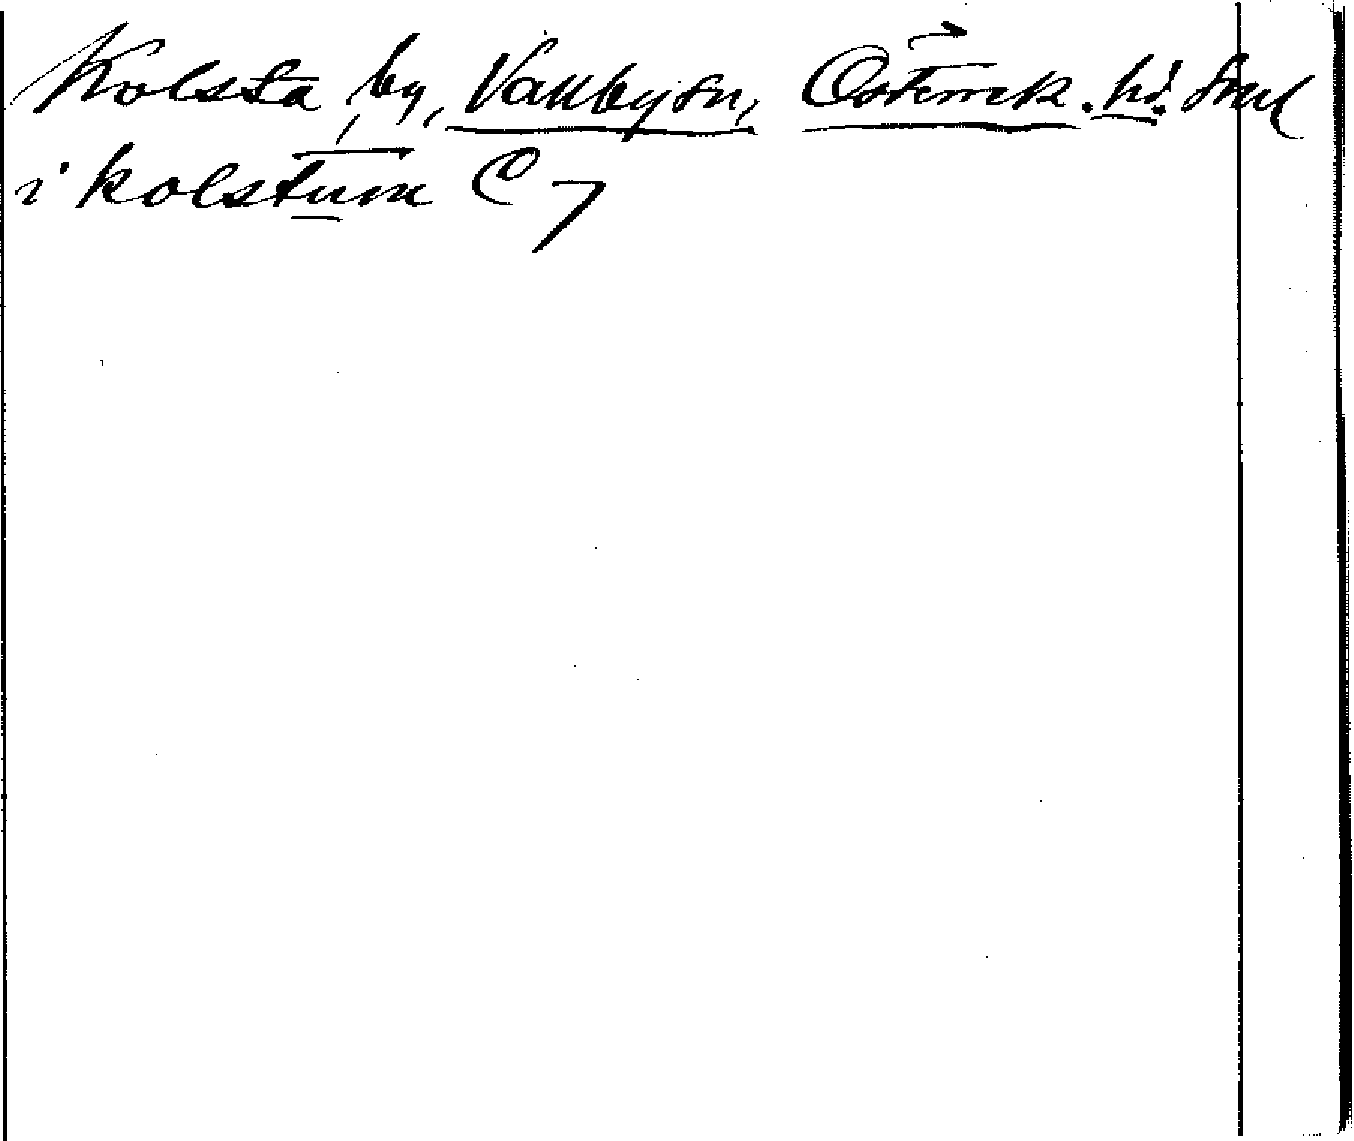 Kolsta by, Vallby sn, Österrek. hd. Sml
i kolstum C 7